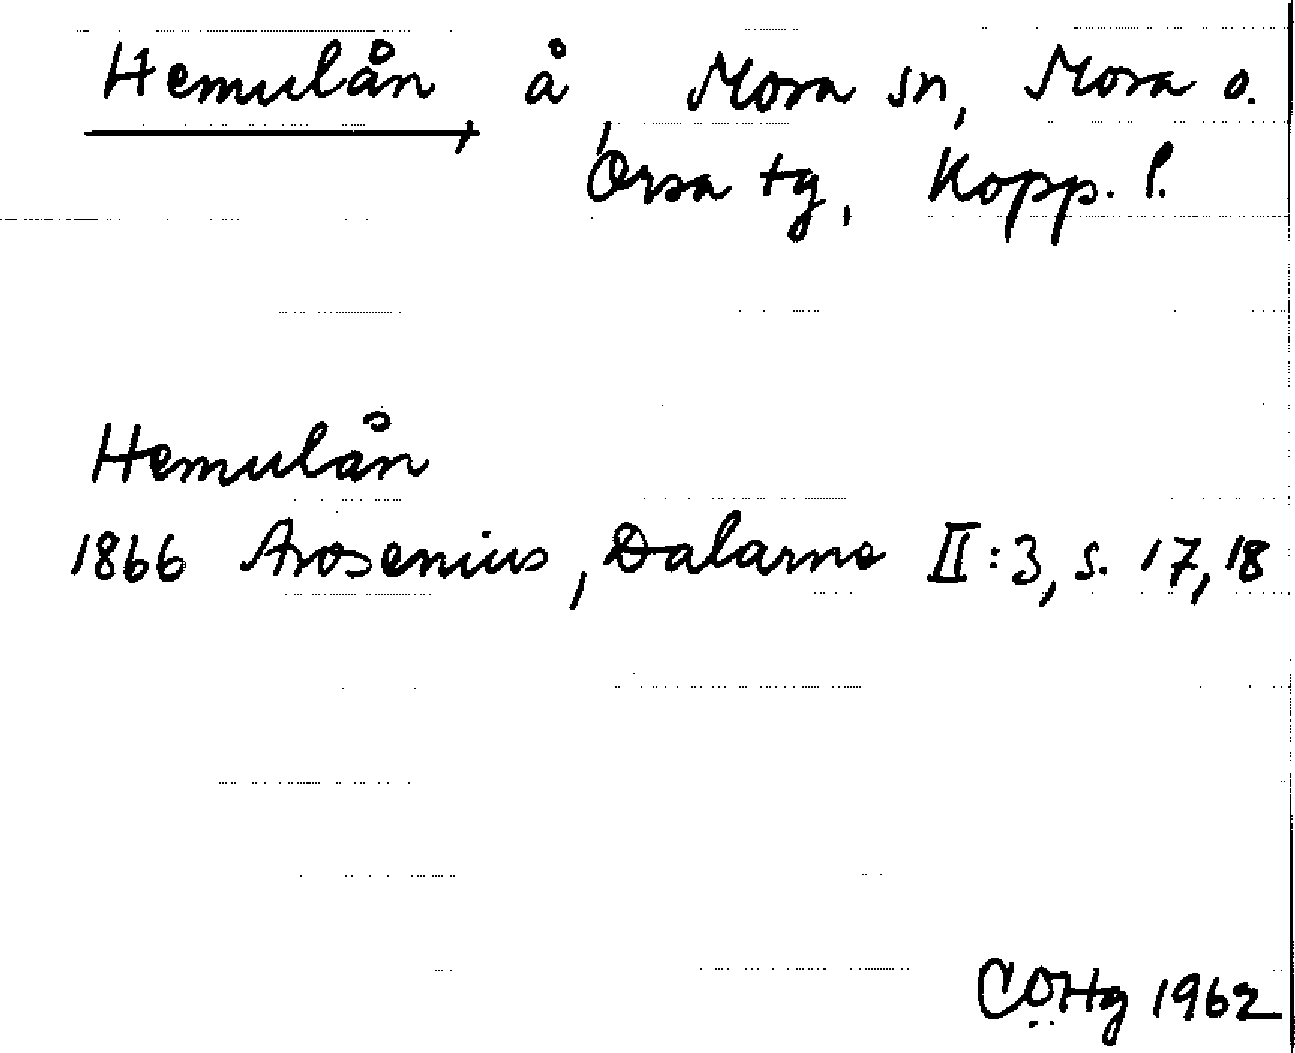 Hemulån, å Mora sn, Mora o.
Orsa tg, Kopp. l.
Hemulån
1866 Arosenius, Dalarne II:3, s. 17, 18
COHg 1962